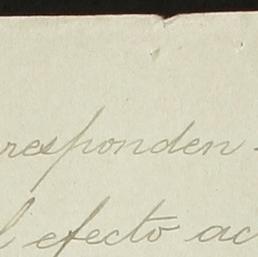 responden-
l efecto ac